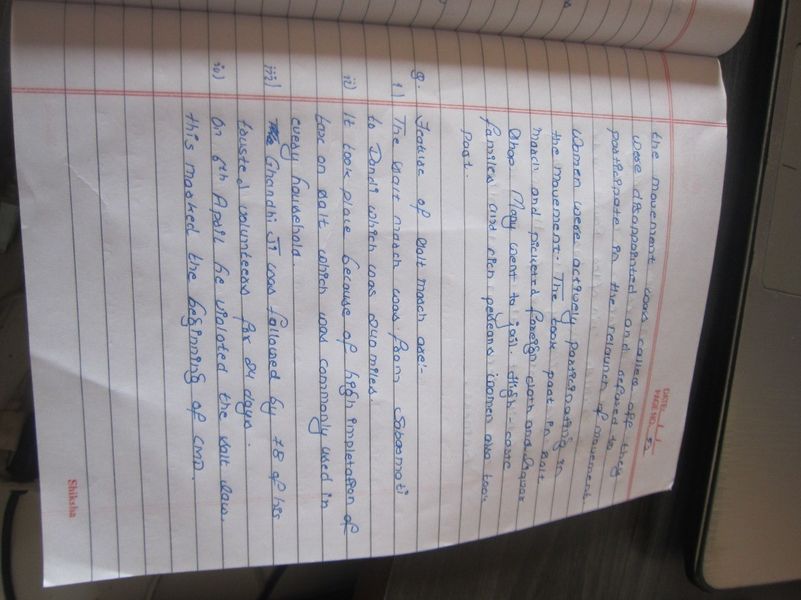 DATE: / /
PAGE NO.: 52
the movement was called off they
were disappointed and refused to
participate in the relaunch of movement.
women were actively participating in
the movement. The took part in salt
march and picuerd foreign cloth and liquor
shop. Many went to jail. High-caste
families and rich peseans women also took
Past.
8. Feature of salt march are:-
i) The salt march was from Sabarmati
to Dandi which was 240 miles
ii) It took place because of high impletation of
tax on salt which was commonly used in
every household.
iii) Ghandhi Ji was followed by 78 of his
trusted volunteers for 24 days.
iv) On 6th April he violoted the salt law,
this marked the beginning of CMD.
Shiksha